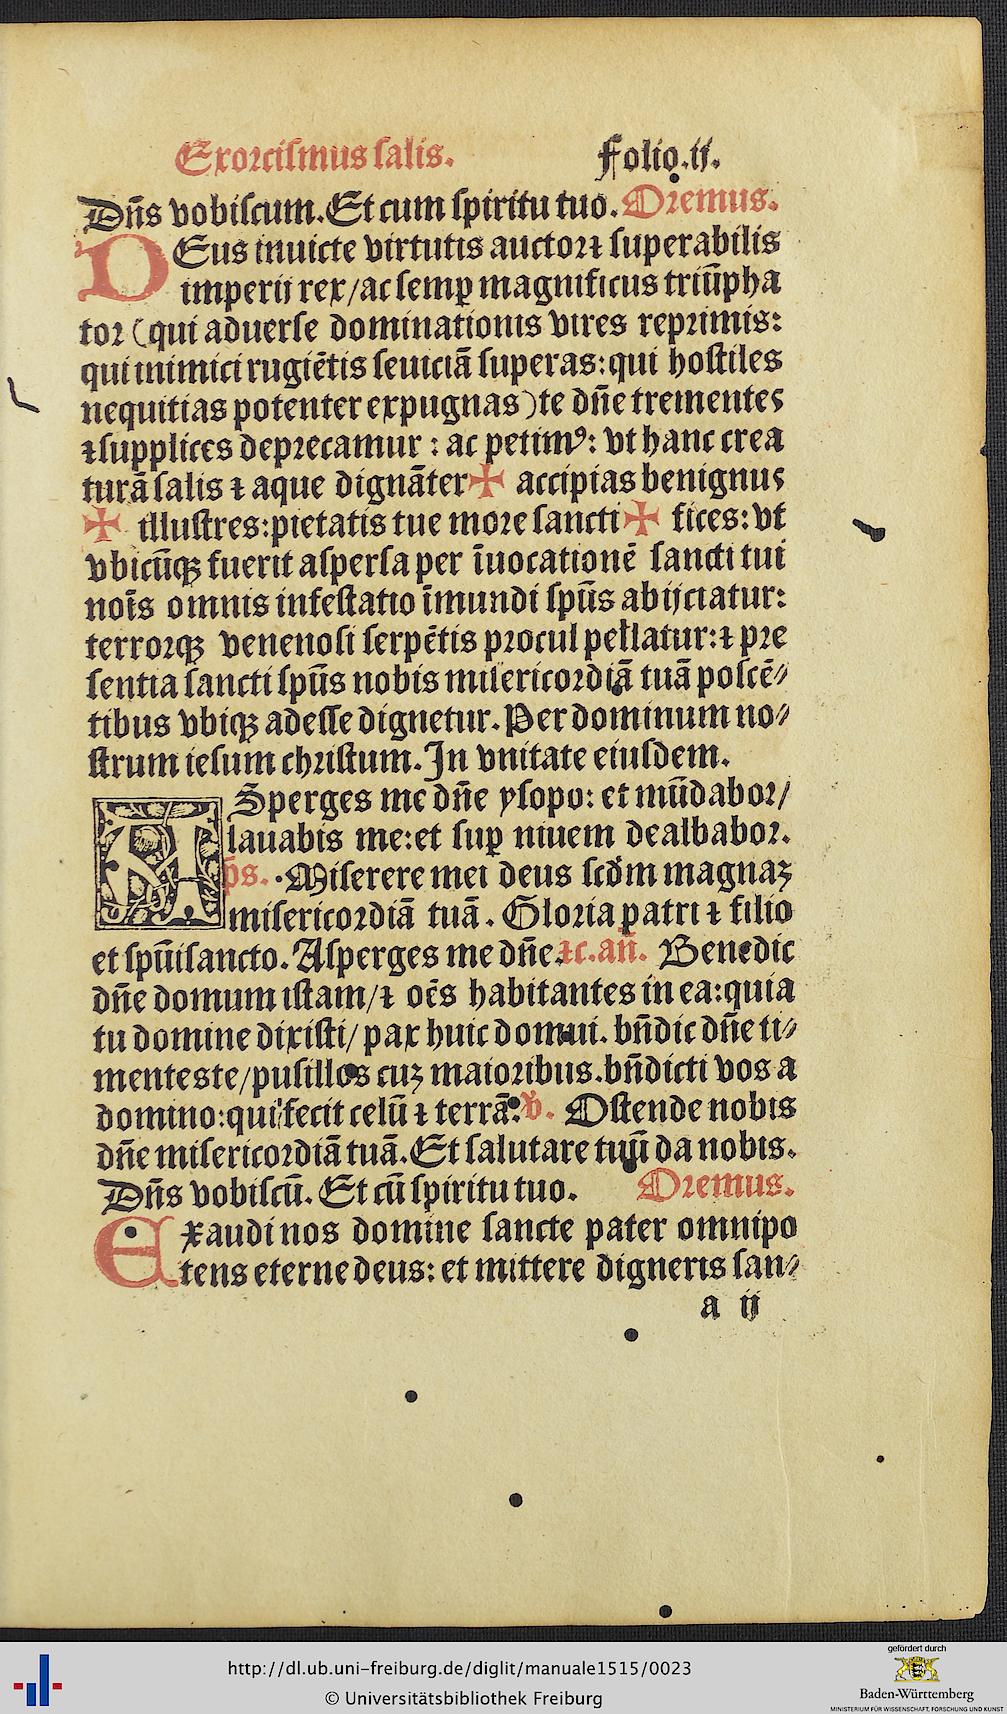 Exorcismus salis. Folio.ij.
Dñs vobiscum. Et cum spiritu tuo. Oremus.
DEus inuicte virtutis auctor ⁊ superabilis
imperij rex/ac semꝑ magnificus triũpha
tor (qui aduerse dominationis vires reprimis:
qui inimici rugiẽtis seuiciã superas:qui hostiles
nequitias potenter expugnas) te dñe trementes
⁊ supplices deprecamur: ac petimꝰ: vt hanc crea
turã salis ⁊ aque dignãter ✠ accipias benignus
✠ illustres:pietatis tue more sancti ✠ fices: vt
vbicũqꝫ fuerit aspersa per ĩuocationẽ sancti tui
noĩs omnis infestatio ĩmundi spũs abijciatur:
terrorqꝫ venenosi serpẽtis procul pellatur: ⁊ pre
sentia sancti spũs nobis misericordiã tuã poscẽ⸗
tibus vbiqꝫ adesse dignetur. Per dominum no⸗
strum iesum christum. In vnitate eiusdem.
ASperges me dñe ysopo: et mũdabor/
lauabis me: et suꝑ niuem dealbabor.
p̃s. Miserere mei deus scd̃m magnaꝫ
misericordiã tuã. Gloria patri ⁊ filio
et spũisancto. Asperges me dñe. ⁊c. añ. Benedic
dñe domum istam/⁊ oẽs habitantes in ea:quia
tu domine dixisti/ pax huic domui. bñdic dñe ti⸗
mentes te/pusillos cuꝫ maioribus. bñdicti vos a
domino:qui fecit celũ ⁊ terrã. ℣. Ostende nobis
dñe misericordiã tuã. Et salutare tuũ da nobis.
Dñs vobiscũ. Et cũ spiritu tuo. Oremus.
Exaudi nos domine sancte pater omnipo
tens eterne deus: et mittere digneris san⸗
a ij
http://dl.ub.uni-freiburg.de/diglit/manuale1515/0023
© Universitätsbibliothek Freiburg
gefördert durch
Baden-Württemberg
MINISTERIUM FÜR WISSENSCHAFT, FORSCHUNG UND KUNST